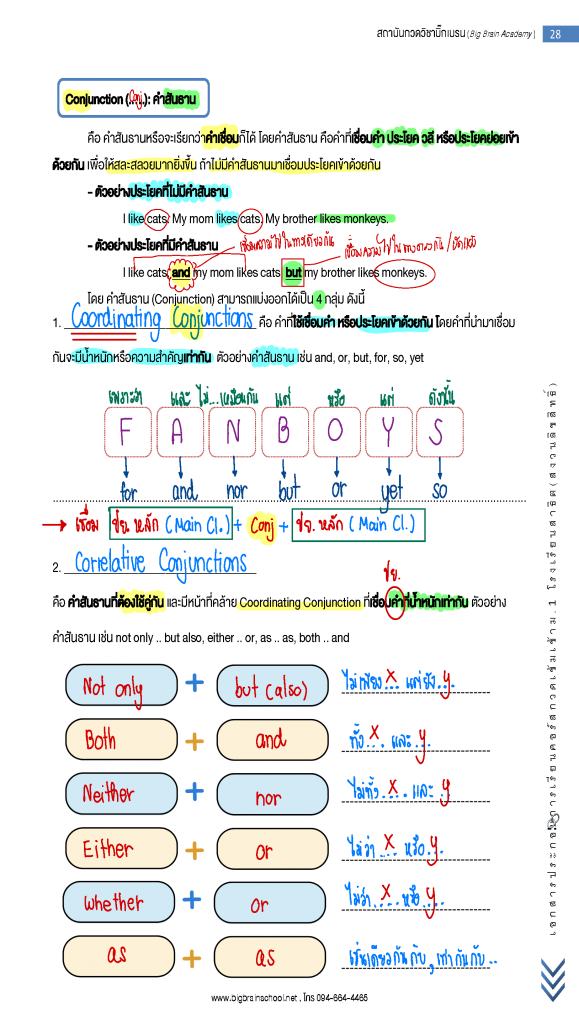 สถาบันกวดวิชาบิ๊กเบรน (Big Brain Academy) 28
Conjunction (..Conj..): คำสันธาน
คือ คำสันธานหรือจะเรียกว่าคำเชื่อมก็ได้ โดยคำสันธาน คือคำที่เชื่อมคำ ประโยค วลี หรือประโยคย่อยเข้า
ด้วยกัน เพื่อให้สละสลวยมากยิ่งขึ้น ถ้าไม่มีคำสันธานมาเชื่อมประโยคเข้าด้วยกัน
- ตัวอย่างประโยคที่ไม่มีคำสันธาน
I like cats. My mom likes cats. My brother likes monkeys.
- ตัวอย่างประโยคที่มีคำสันธาน
เชื่อมความไปในทางเดียวกัน
I like cats and my mom likes cats but my brother likes monkeys.
โดย คำสันธาน (Conjunction) สามารถแบ่งออกได้เป็น 4 กลุ่ม ดังนี้
1. Coordinating Conjunctions คือ คำที่ใช้เชื่อมคำ หรือประโยคเข้าด้วยกัน โดยคำที่นำมาเชื่อม
กันจะมีน้ำหนักหรือความสำคัญเท่ากัน ตัวอย่างคำสันธาน เช่น and, or, but, for, so, yet
เพราะว่า และ ไม่...เหมือนกัน แต่ หรือ แต่ ดังนั้น
F A N B O Y S
for and nor but or yet so
เชื่อม ปย. หลัก (Main Cl.) + Conj + ปย. หลัก (Main Cl.)
2. Correlative Conjunctions
ปย.
คือ คำสันธานที่ต้องใช้คู่กัน และมีหน้าที่คล้าย Coordinating Conjunction ที่เชื่อมคำที่น้ำหนักเท่ากัน ตัวอย่าง
คำสันธาน เช่น not only .. but also, either .. or, as .. as, both .. and
Not only + but (also) ไม่เพียง..x.. แต่ยัง..y..
Both + and ทั้ง..x.. และ..y..
Neither + nor ไม่ทั้ง..x.. และ..y
Either + or ไม่ว่า..x.. หรือ..y..
whether + or ไม่ว่า..x.. หรือ..y..
as + as เช่นเดียวกันกับ, เท่ากันกับ..
www.bigbrainschool.net , โทร 094-664-4465